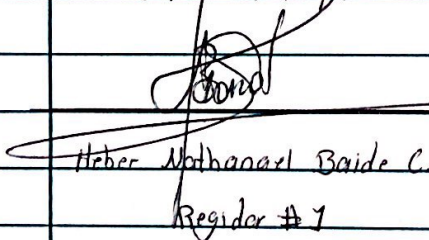 Heber Nathanael Baide C.
Regidor # 1